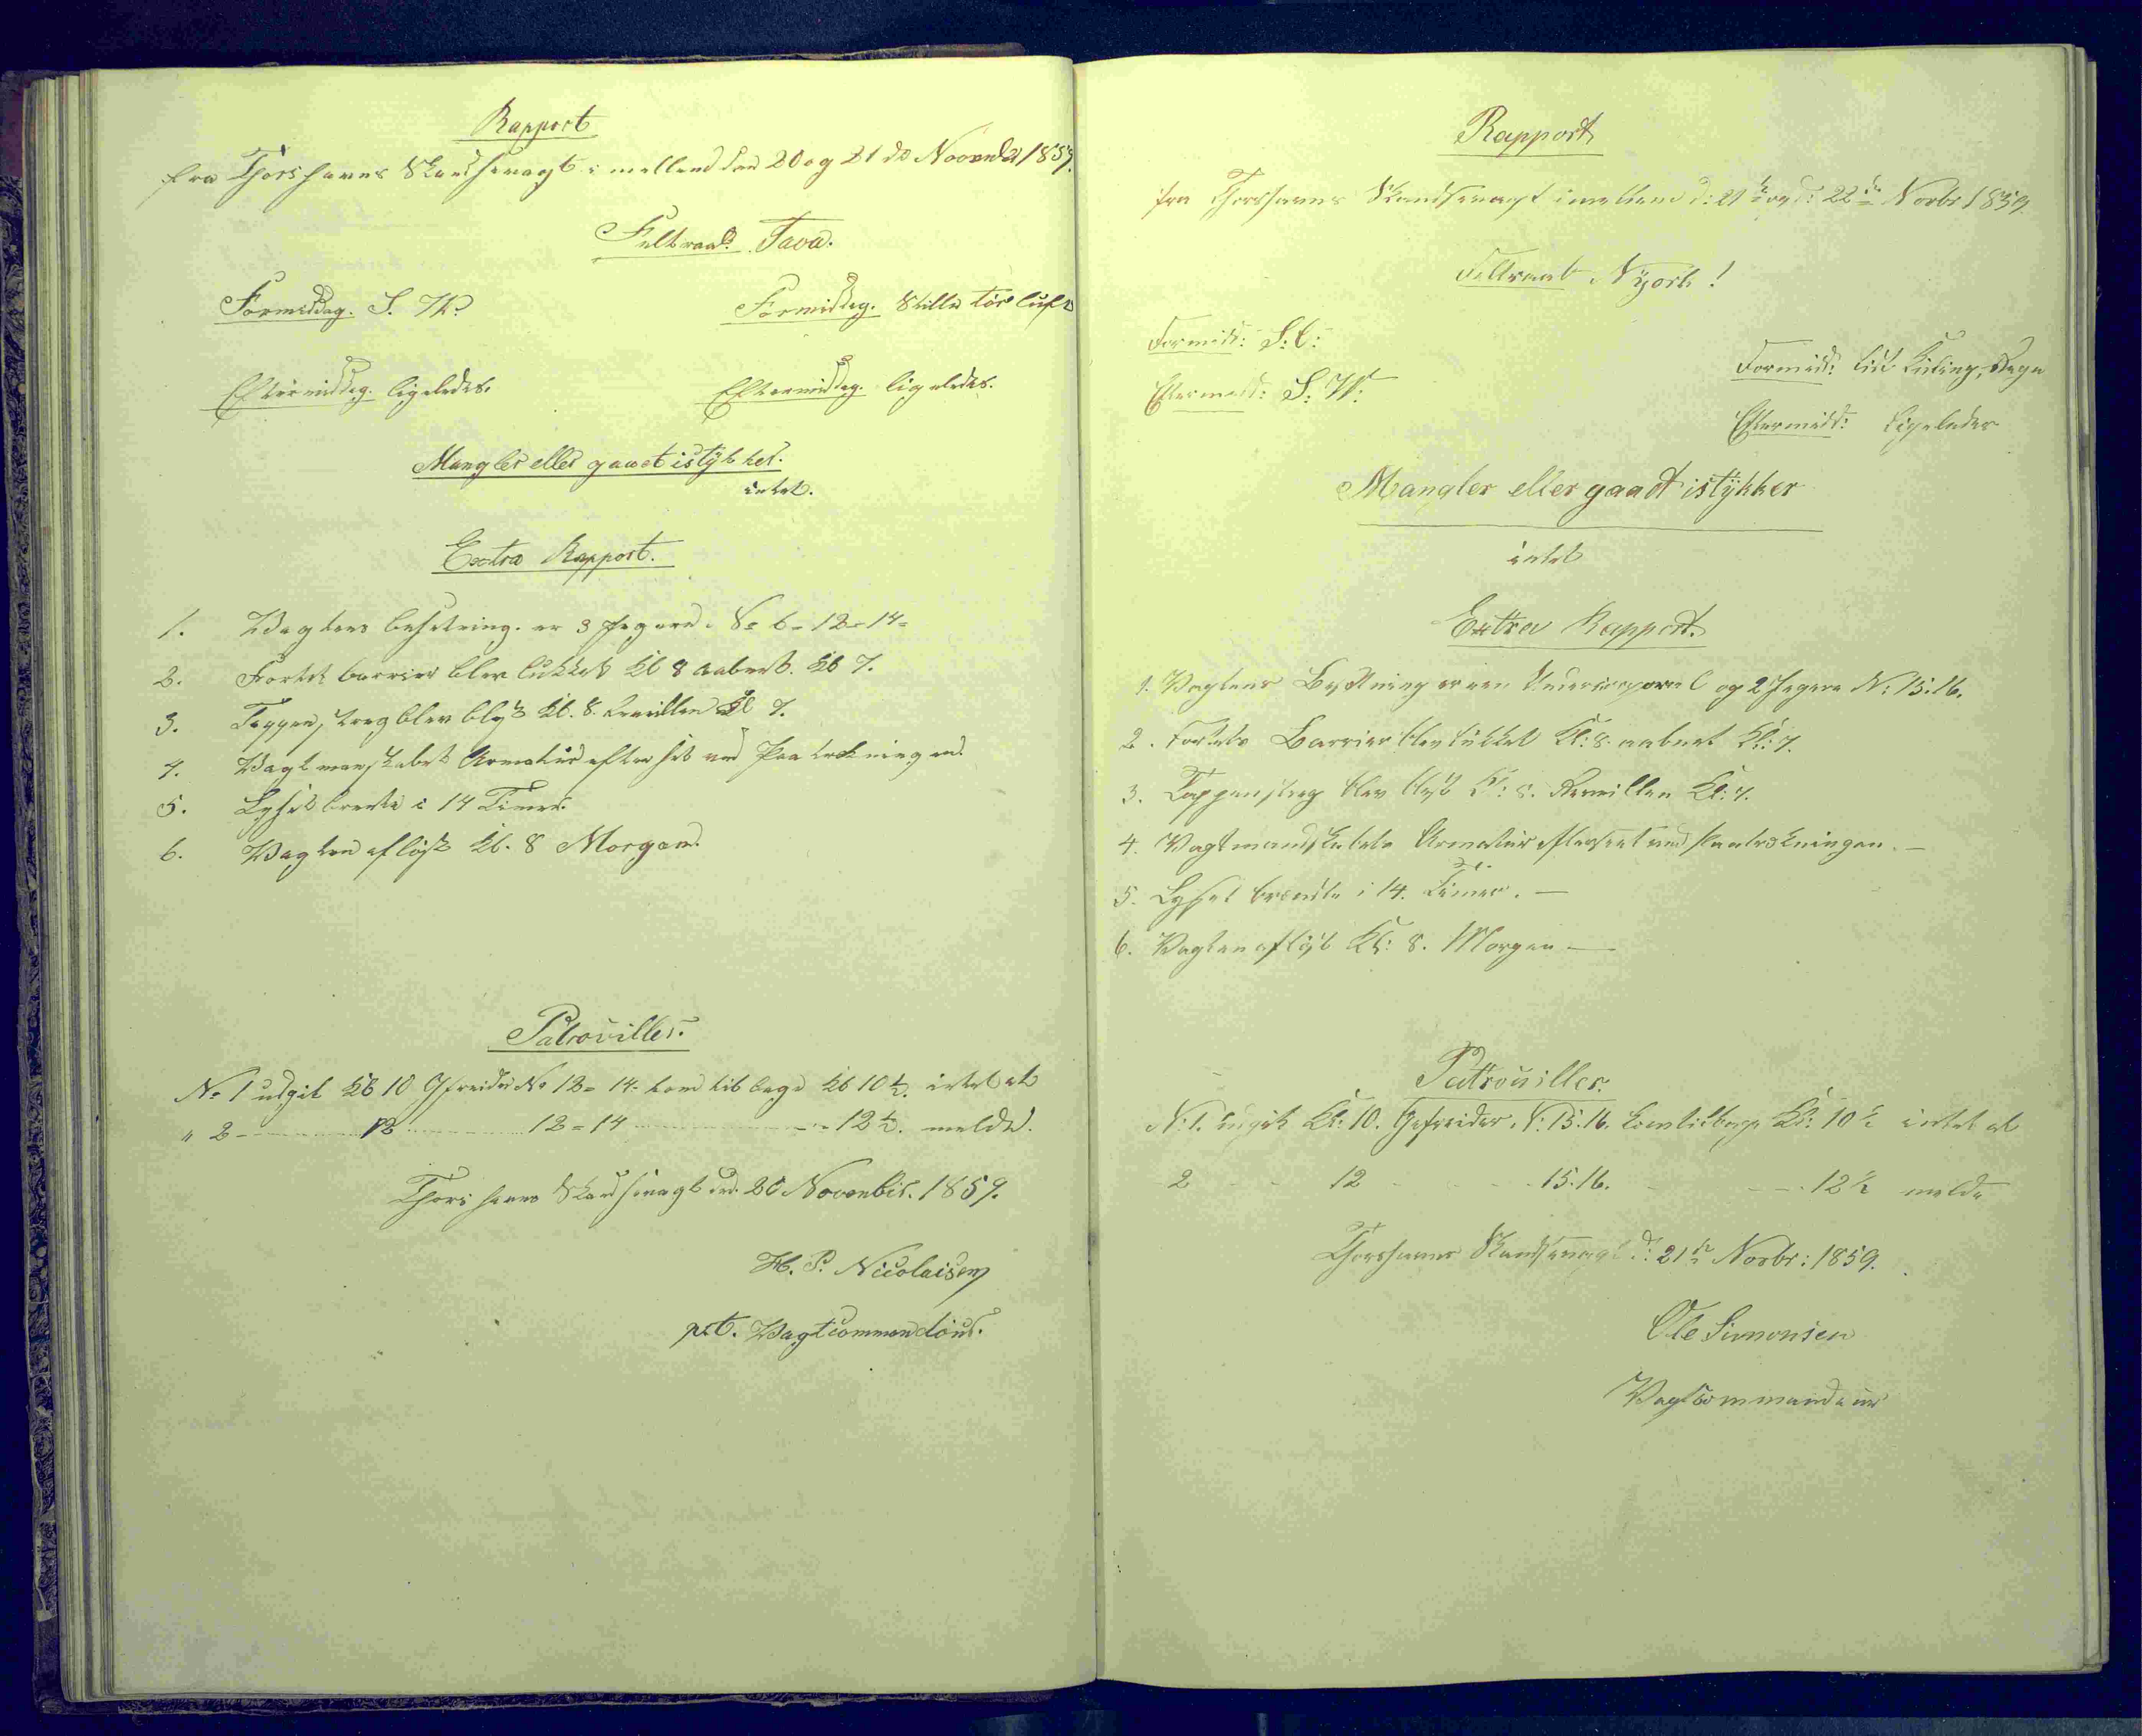 Rapport
fra Thorshavns Skandsevagt imellem den 20 og 21 de Novembr 1859.
Feltraab. Java.
Formiddag. S. W. Formiddag. Stille tør luft
Eftermiddag. ligeledes. Eftermiddag. ligeledes.
Mangler eller gaaet istykker.
intet.
Extra Rapport.
1. Vagtens besetning. er 3 Jegere. No 6 = 12 = 14 =
2. Fortets barrier blev lukket Kl 8 aabnet. Kl 7.
3. Tappenstreg blev blæst Kl. 8. Reveillen Kl 7.
4. Vagtmanskabets Armatur efterset ved Paatrekningen.
5. Lyset brente i 14 Timer.
6. Vagten afløst Kl. 8 Morgen.
Patrouiller.
No 1 udgik Kl 10 Gefreider No 12 = 14 = kom tilbage Kl 10 ½. intet at
" 2 - 12 12 = 14 - 12 ½. melde.
Thorshavns Skandsevagt den 20 November. 1859.
H. P. Nicolaisen
pt. Vagtcommandeur.
Rapport
fra Thorshavns Skandsevagt imellem d: 21de og d: 22de Novbr 1859.
Feltraab Nyork!
Formidd: S: O:
Formidd: lidt Kuling, Regn
Eftermidd: S: W:
Eftermidd: Ligeledes
Mangler eller gaadt istykker
intet
Extra Rapport.
1. Vagtens Besetning er een Undercorporal og 2 Jegere N: 15. 16.
2. Fortets Barrier blev lukket Kl: 8. aabnet Kl: 7.
3. Tappenstreg blev blæst Kl: 8. Reveillen Kl: 7.
4. Vagtmandskabets Armatur efterseet ved Paatrekningen. —
5. Lyset brændte i 14. Timer. —
6. Vagten afløst Kl: 8. Morgen —
Patrouiller.
N: 1. udgik Kl: 10. Gefreider. N: 15. 16. kom tilbage Kl: 10 ½ intet at
2 - - 12 - - 15. 16. - - 12 ½ melde
Thorshavns Skandsevagt d: 21de Novbr: 1859.
Ole Simonsen
Vagtcommandeur